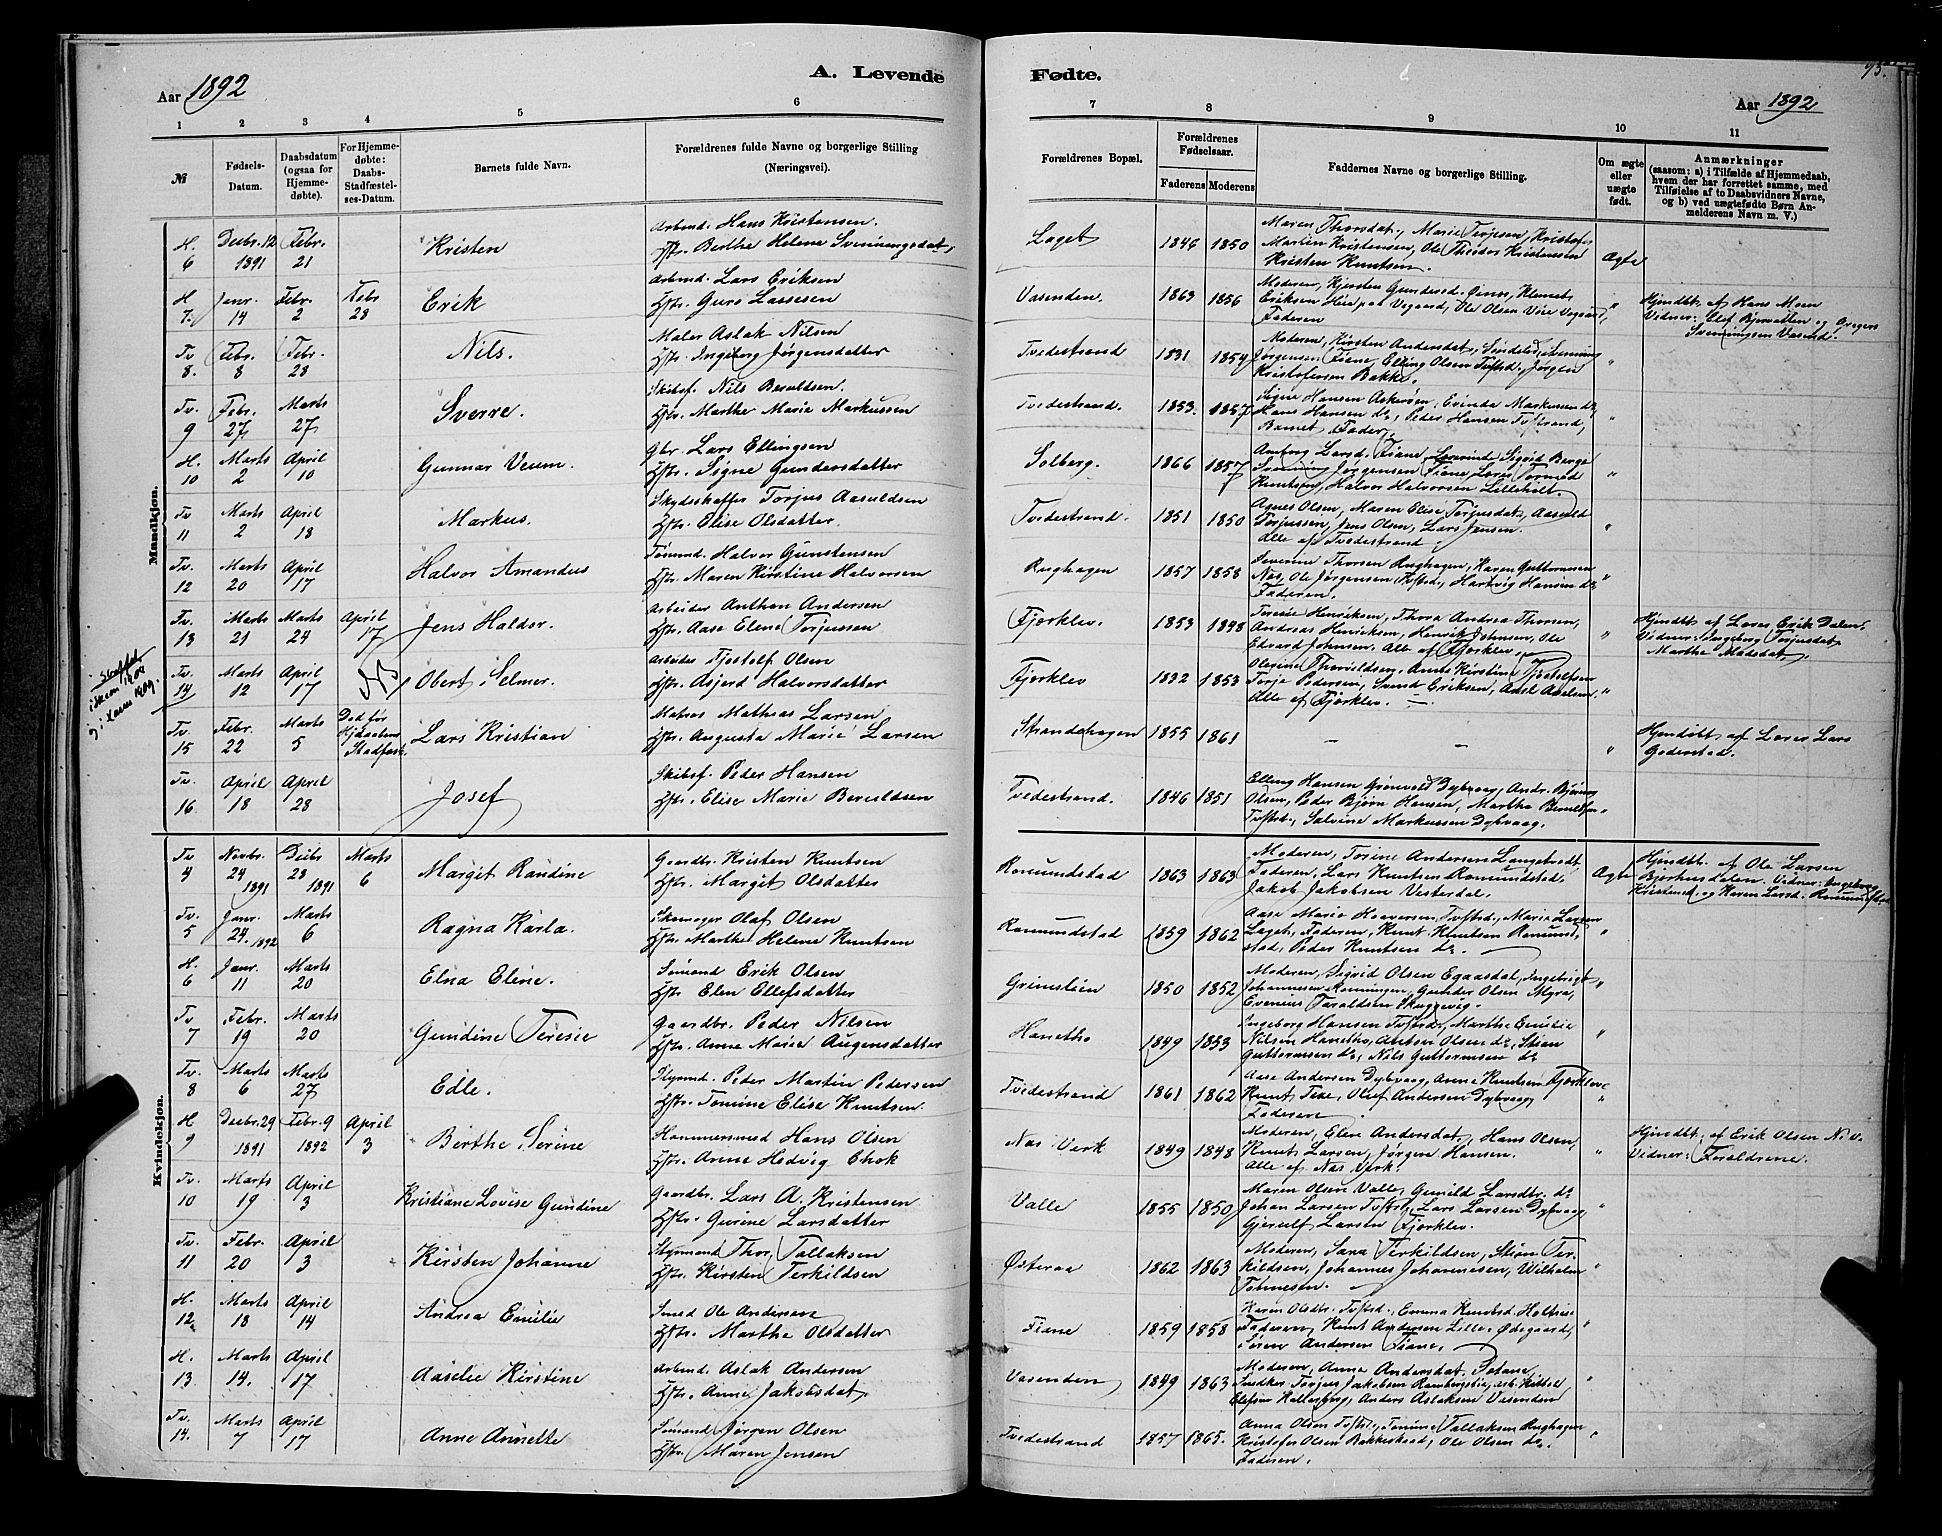 Aar 1892
A. Levende
Fødte.
95.
Aar 1892
1 2 3 4 5 6 7 8 9 10 11
№
Fødsels-
Datum.
Daabsdatum
(ogsaa for
Hjemme-
døbte).
For Hjemme-
døbte:
Daabs-
Stadfæstel-
ses-Datum.
Barnets fulde Navn.
Forældrenes fulde Navne og borgerlige Stilling
(Næringsvei).
Forældrenes Bopæl.
Forældrenes
Fødselsaar.
Faderens Moderens
Faddernes Navne og borgerlige Stilling.
Om ægte
eller
uægte
født.
Anmærkninger
(saasom: a) i Tilfælde af Hjemmedaab,
hvem der har forrettet samme, med
Tilføielse af to Daabsvidners Navne,
og b) ved uægtefødte Børn An-
melderens Navn m. V.)
Mandkjøn.
H. 6 Decbr. 12 1891 Febr. 21 Kristen
Arbmd. Hans Kristensen.
Hstr. Berthe Helene Svenningsdat.
Laget 1846 1850
Maren Thorsdat., Marie Terjesen, Kristofer
Martin Kristensen, Ole Theodor Kristensen
Kristen Knutsen.
Ægte
H. 7. Janr. 14 Febr. 2 Febr 28 Erik
Arbmd. Lars Eriksen
Hstr. Guro Lassesen
Vasenden. 1863 1856
Faderen
Hjmdbt. af Hans Moen
Svenningsen Vasend.
Tv 8. Febr. 8 Febr. 28 Nils.
Maler Aslak Nilsen
Hstr. Ingeborg Jørgensdatter
Tvedestrand 1831 1854
Moderen, Kirsten Andersdat.
Jørgensen Fiane, Elling Olsen Tvstrd., Jørgen
Kristofersen Bakke.
Tv. 9 Febr. 27. Marts 27 Sverre.
Skibsf. Nils Beruldsen.
Hstr. Marthe Marie Markussen
Tvedestrand. 1853. 1857
Signe Hansen Askerøen, Evinda Markussen do.
Hans Hansen do., Peder Hansen Tvstrand,
Barnets Fader.
H. 10 Marts 2 April 10 Gunnar Veum.
Gbr. Lars Ellingsen
Hstr. Signe Gundersdatter
Solberg. 1866 1857
Svenning Jørgensen Fiane, Lars Tormod
Knutsen, Halvor Halvorsen Lilleholt.
Tv 11 Marts 2 April 18 Markus.
Skydsskaffer Torjus Aasuldsen
Hstr. Elise Olsdatter.
Tvedestrand. 1851 1850
Agnes Olsen, Maren Elise Torjusdat., Aasuld
Torjussen, Jens Olsen, Lars Jensen.
Alle af Tvedestrand
Tv. 12 Marts 20 April 17 Halvor Amandus
Tømmd. Halvor Gunstensen
Hstr. Maren Kirstine Halvorsen
Rughagen 1857 1858
Severine Thorsen Rughagen, Karen Guttormsen
Næs, Ole Jørgensen Tvstrd., Hartvig Hansen do.
Faderen.
Tv. 13 Marts 21 Marts 24 April 17 Jens Haldor.
Arbeider Anthon Andersen
Hstr. Aase Elene Torjussen
Fjorklev. 1853 1848
Terese Henriksen, Thora Andrea Thorsen,
Andreas Henriksen, Henrik Johnsen, Ole
Edvard Johnsen. Alle af Fjorklev.
Hjmdbt. af Lærer Erik Dalen.
Vidner: Ingeborg Torjusdat.
Marthe Madsdat.
Tv. 14 Marts 12 April 17 NB! Obert Selmer.
Arbeider Fjostolf Olsen
Hstr. Asjerd Halvorsdatter
Fjorklev 1832 1853
Olegine Thorildsen, Anne Kirstine Fjostolfsen
Terje Pedersen, Svend Eriksen, Axel Axelsen
Alle af Fjorklev. —
Tv 15 Febr. 22 Marts 5 Død før
Hjdaabens
Stadfæst. Lars Kristian
Matros Mathias Larsen
Hstr. Augusta Marie Larsen
Strandehagen 1855 1861 — —
Hjemdøbt af Lærer Lars
Goderstad.
Tv. 16 April 18 April 28 Josef
Skibsf. Peder Hansen
Hstr. Elise Marie Beruldsen
Tvedestrand. 1846 1851
Elling Hansen Grønvold Dybvaag, Andr. Bjønng
Olsen, Peder Bjørn Hansen, Martha Beruldsen
Tvstrd., Salvine Markussen Dybvaag.
Kvindekjøn.
Tv 4 Novbr. 24 1891 Decbr 28 1891 Marts 6 Margit Randine
Gaardbr. Kristen Knutsen
Hstr. Margit Olsdatter
Romundstad 1863 1863
Moderen, Torine Andersen Langebradt,
Faderen, Lars Knutsen Romundstad,
Jakob Jakobsen Vesterdal.
Ægte
Hjmdbt. af Ole Larsen
Bjorhusdalen. Vidner: Ingeborg
Kristensd. og Karen Larsd. Romundstad
Tv. 5 Janr. 24. 1892 Marts 6 Ragna Karla.
Skomager Olaf Olsen
Hstr. Marthe Helene Knutsen
Romundstad 1859 1862
Aase Marie Haaversen Tvstrd., Marie Larsen
Laget, Faderen, Knut Knutsen Romund-
stad, Peder Knutsen do. —
H. 6 Janr. 11 Marts 20 Elna Eline.
Sømand Erik Olsen
Hstr. Elen Ellefsdatter
Grimstein 1850 1852
Moderen, Sigrid Olsen Egaasdal, Ingebrigt
Johannesen Rønningen, Gunder Olsen Myra,
Evenius Taraldsen Skuggevig.
Tv 7 Febr. 19 Marts 20 Gundine Teresie
Gaardbr. Peder Nilsen
Hstr. Anne Marie Augensdatter
Hanetho 1849 1853
Ingeborg Hansen Tvstrd., Marthe Emilie
Nilsen Hanetho, Anton Olsen do., Stian
Guttormsen do., Nils Guttormsen do
Tv. 8 Marts 6 Marts 27 Edle.
Styrmd. Peder Martin Pedersen
Hstr. Tomine Elise Knutsen.
Tvedestrand 1861 1862
Aase Andersen Dybvaag, Anne Knutsen Fjorklev
Knut Texe, Oluf Andersen Dybvaag
Faderen
H 9 Decbr. 29 1891 Febr. 9 1892 April 3 Berthe Serine
Hammersmed Hans Olsen
Hstr. Anne Hedvig Chok
Næs Verk 1849 1848
Moderen, Elen Andersdat., Hans Olsen,
Knut Larsen, Jørgen Hansen.
Alle af Næs Verk.
Hjmdbt. af Erik Olsen N. V.
Vidner: Forældrene.
Tv. 10 Marts 19 April 3 Kristiane Lovise Gundine
Gaardbr. Lars A. Kristensen
Hstr. Gurine Larsdatter
Valle 1855 1850
Maren Olsen Valle, Gunild Larsdtr. do
Johan Larsen Tvstrd., Lars Larsen Dybvaag
Gjerulf Larsen Fjorklev.
Tv. 11 Febr. 20 April 3 Kirsten Johanne
Styrmand Thor Tallaksen
Hstr. Kirsten Terkildsen
Østeraa 1862 1863
Moderen, Sara Terkildsen, Stian Ter-
kildsen, Johannes Johannesen, Wilhelm
Tønnesen.
H. 12 Marts 18 April 14 Andrea Emilie
Smed Ole Andersen
Hstr. Marthe Olsdatter
Fiane 1859 1858
Faderen, Knut Andersen Lille-Ødegaard,
Søren Andersen Fiane.
H. 13 Marts 14. April 17 Aaselie Kirstine
Arbmd. Aslak Andersen
Hstr. Anne Jakobsdat.
Vasenden 1849 1863
Snedker Torjus Jakobsen Rambergstø, arb. Kittel
Elefsen Hallenberg, Anders Aslaksen Vasenden
Tv. 14. Marts 7 April 17 Anne Annette
Sømand Jørgen Olsen
Hstr. Maren Jensen
Tvedestrand 1857 1865.
Anna Olsen Tvstr., Tomine Tallaksen Rughagen
Kristofer Olsen Bakkeskaad, Ole Olsen do.
Faderen.